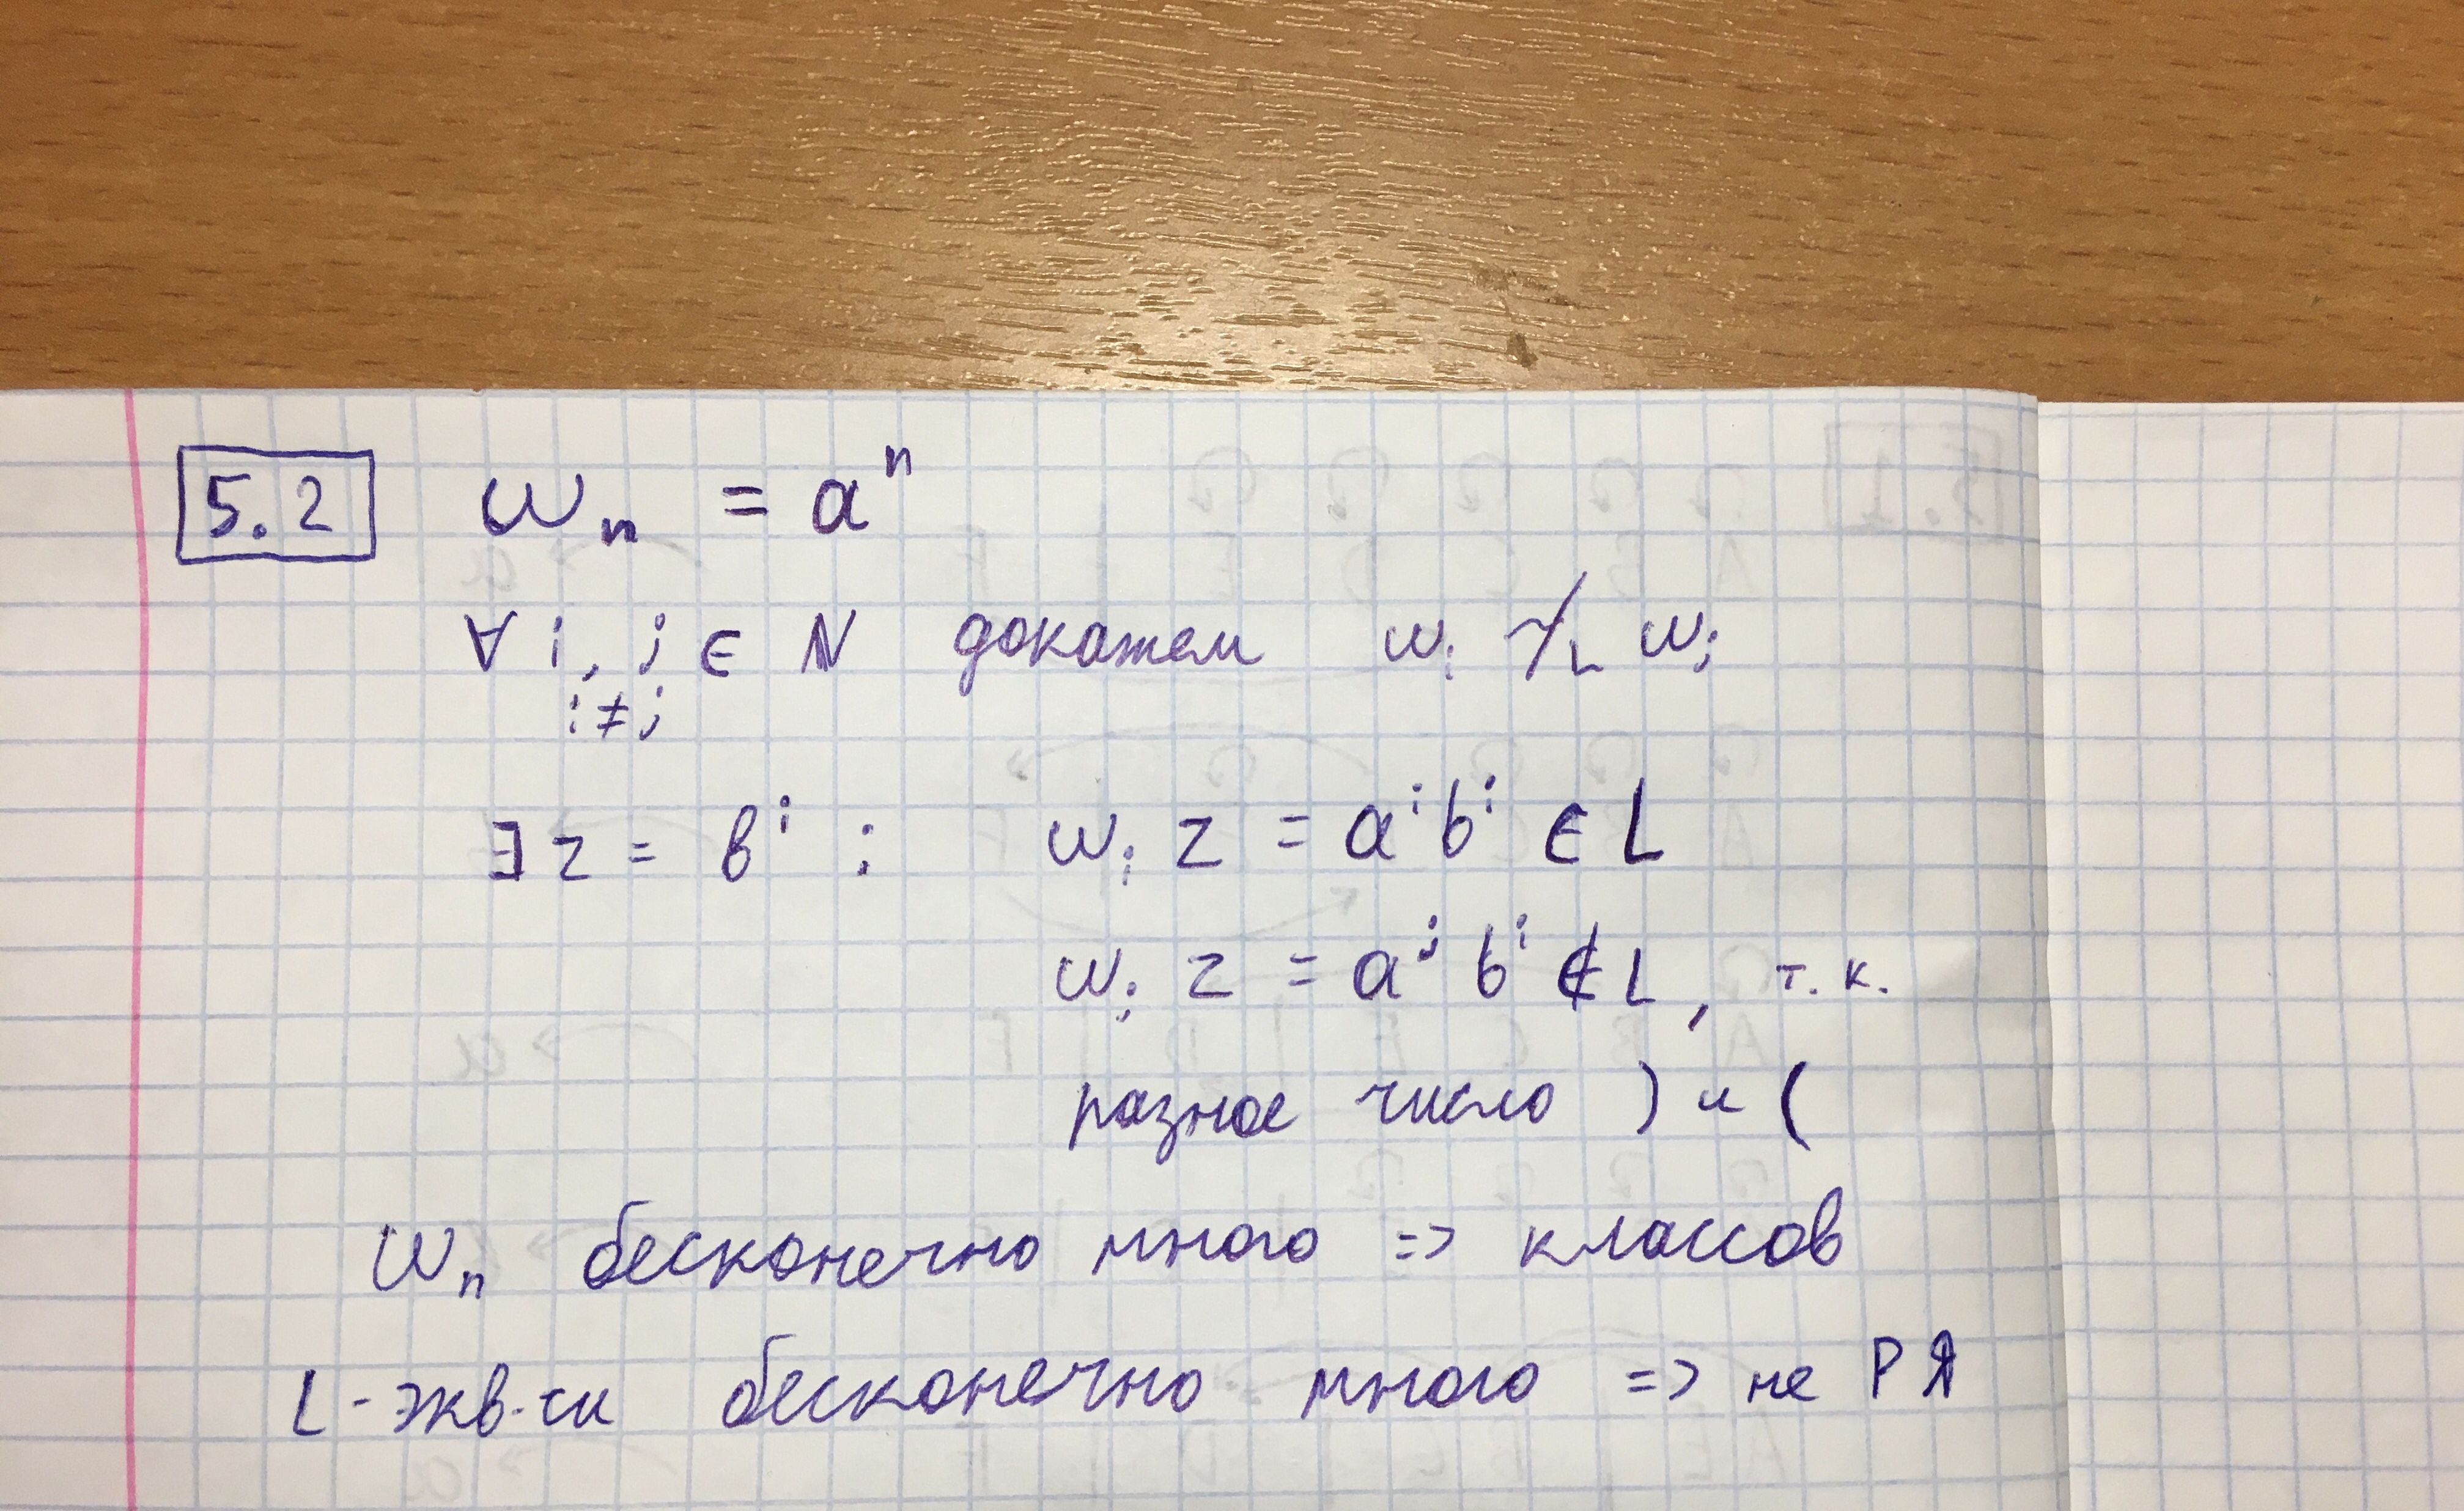 5.2 wₙ = aⁿ
∀ i, j ∈ N докажем wᵢ ≁_L wⱼ
i ≠ j
∃ z = bⁱ : wᵢ z = aⁱ bⁱ ∈ L
wⱼ z = aʲ bⁱ ∉ L, т.к.
разное число ) и (
wₙ бесконечно много => классов
L-экв-ти бесконечно много => не РЯ